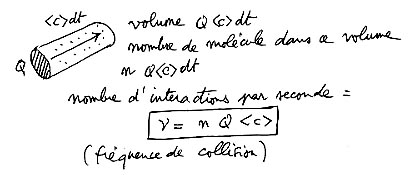 <c>dt
volume Q<c>dt
nombre de molécule dans ce volume
Q
n Q<c>dt
nombre d'interactions par seconde =
ν = n Q <c>
(fréquence de collision)